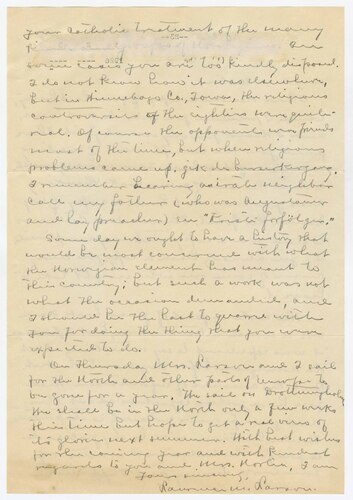 your catholic treatment of the many
In
some cases you are too kindly disposed.
I do not know how it was elsewhere,
but in Winnebago Co., Iowa, the religious
controversies of the eighties were quite
real. Of course the opponents were friends
most of the time, but when religious
problems came up, gik de berserkergang.
I remember hearing an irate neighbor
call my father (who was Augustana
and lay preacher) en "Kristi forfölger."
Some day we ought to have a history that
would be most concerned with what
the Norwegian element has meant to
this country; but such a work was not
what the occasion demanded, and
I should be the last to quarrel with
you for doing the thing that you were
expected to do.
On Thursday Mrs. Larson and I sail
for the North and other parts of Europe to
be gone for a year. We sail on Drottningholm.
We shall be in the North only a few weeks
this time but hope to get a real view of
its glories next summer. With best wishes
for the coming year and with kindest
regards to you and Mrs. Norlie, I am
Yours sincerely,
Laurence M. Larson.